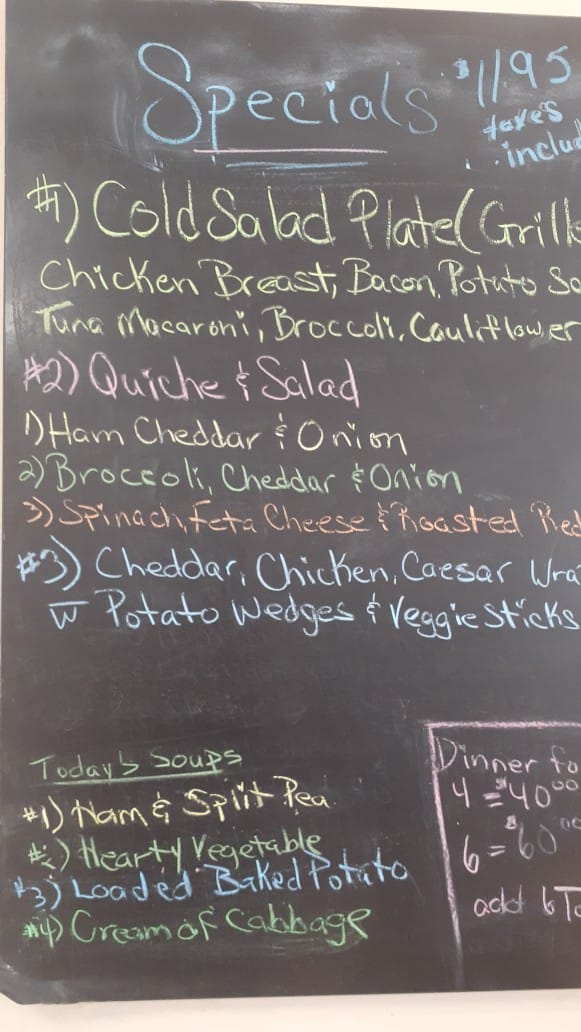 Specials $11 95
taxes
inclu
#1) Cold Salad Plate (Grill
Chicken Breast, Bacon, Potato Sa
Tuna Macaroni, Broccoli, Cauliflower
#2) Quiche & Salad
1) Ham Cheddar & Onion
2) Broccoli, Cheddar & Onion
3) Spinach, Feta Cheese & Roasted Red
#3) Cheddar, Chicken, Caesar Wra
w Potato Wedges & Veggie Sticks
Today's Soups
#1) Ham & Split Pea
#2) Hearty Vegetable
#3) Loaded Baked Potato
#4) Cream of Cabbage
Dinner fo
4 = $40 00
6 = $60 00
add 6 T